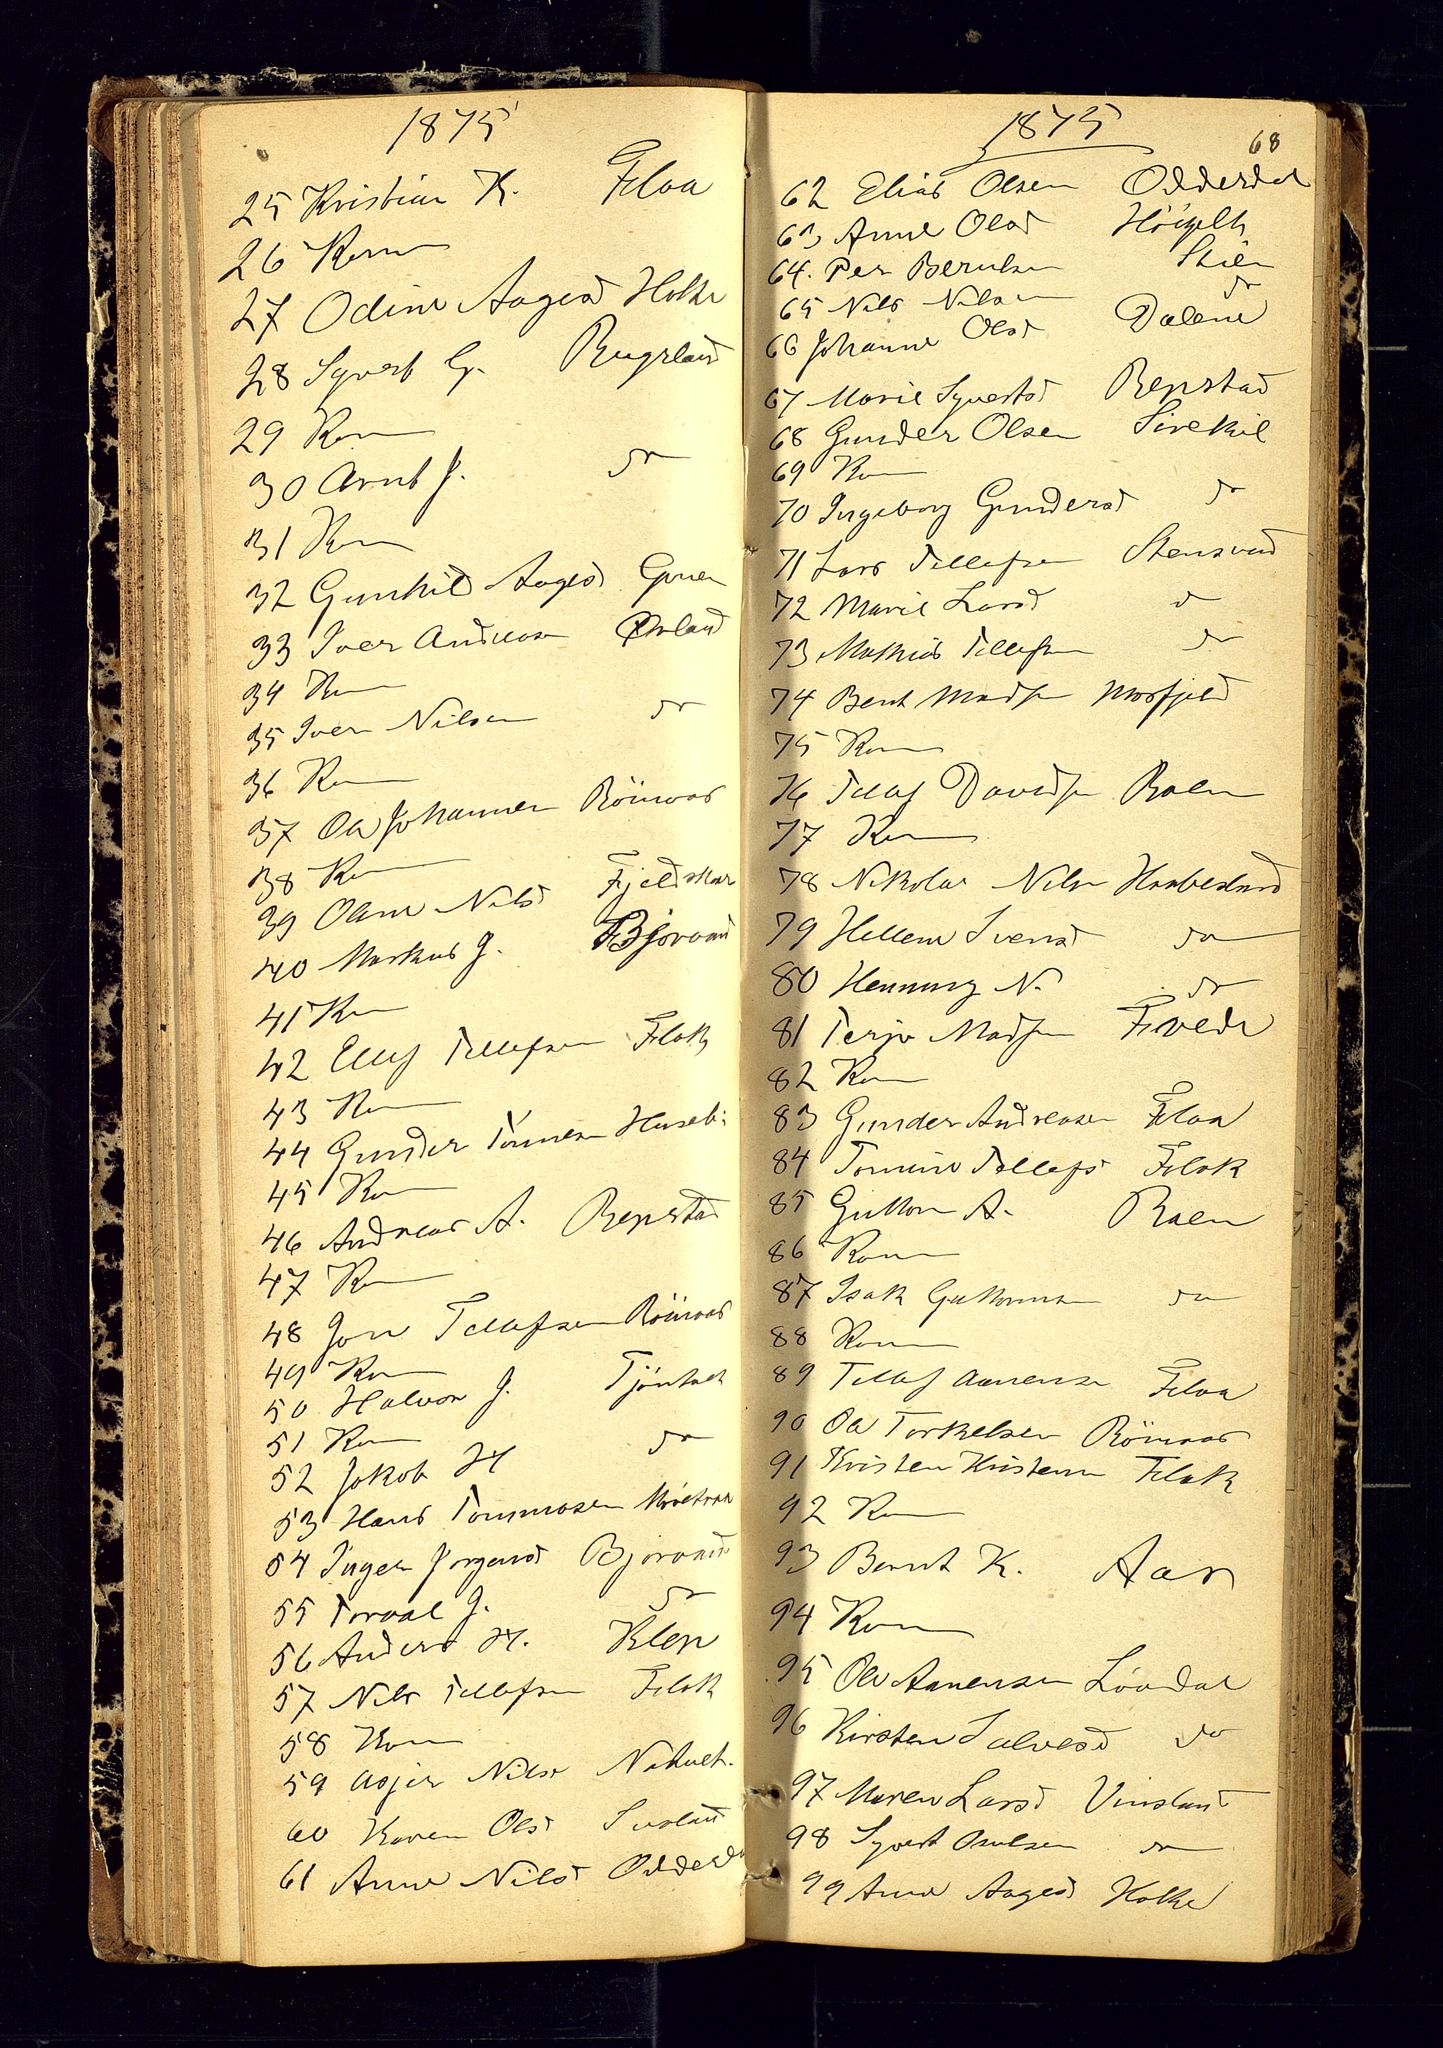 1875
25 Kristian K. Floa
26 Kone
27 Odine Aagesd Holke
28 Syvert G. Rugsland
29 Kone
30 Arnt J. do
31 Kone
32 Gunhild Aagesd Gruen
33 Iver Andreasen
34 Kone
35 Iver Nilsen do
36 Kone
37 Ola Johannesen Röinaas
38 Kone
39 Olene Nilsd Fjeldskaar
40 Markus J. Bjorvand
41 Kone
42 Ellef Tellefsen Flak
43 Kone
44 Gunder Tommesen Huseb:
45 Kone
46 Andreas A. Repstad
47 Kone
48 Jon Tellefsen Röinaas
49 Kone
50 Halvor J. Tjöntvet
51 Kone
52 Jakob H do
53 Hans Tommasen
54 Inger Jörgensd Bjorvand
55 Torval J. do
56 Anders H. Klep
57 Nils Tellefsen Flak
58 Kone
59 Asjer Nilsen
60 Karen Olsd
61 Anne Nilsd Odderdal
1875
68
62 Elias Olsen Odderdal
63 Anne Olsd
64. Per Berulsen Skien
65 Nils Nilsen do
66 Johanne Olsd Dalene
67 Marie Syvertsd Repstad
68 Gunder Olsen Sirekil
69 Kone
70 Ingeborg Gundersd do
71 Lars Tellefsen Stensvand
72 Marie Larsd do
73 Mathias Tellefsen do
74 Bent Madsen Mosfjeld
75 Kone
76 Tellef Davidsen Roen
77 Kone
78 Nikolai Nilsen Haabesland
79 Hellene Svensd do
80 Henning N. do
81 Terje Madsen Tvede
82 Kone
83 Gunder Andreasen Floa
84 Tomine Tellefsd Flak
85 Guttorm A. Roen
86 Kone
87 Isak Guttormsen do
88 Kone
89 Tellef Aanensen Floa
90 Ole Torkelsen Röinaas
91 Kristen Kristensen Flak
92 Kone
93 Bernt K. Aas
94 Kone
95 Ole Aanensen Lövdal
96 Kirsten Salvesd do
97 Maren Larsd Vinsland
98 Syvert Osulsen do
99 Anne Aagesd Holke